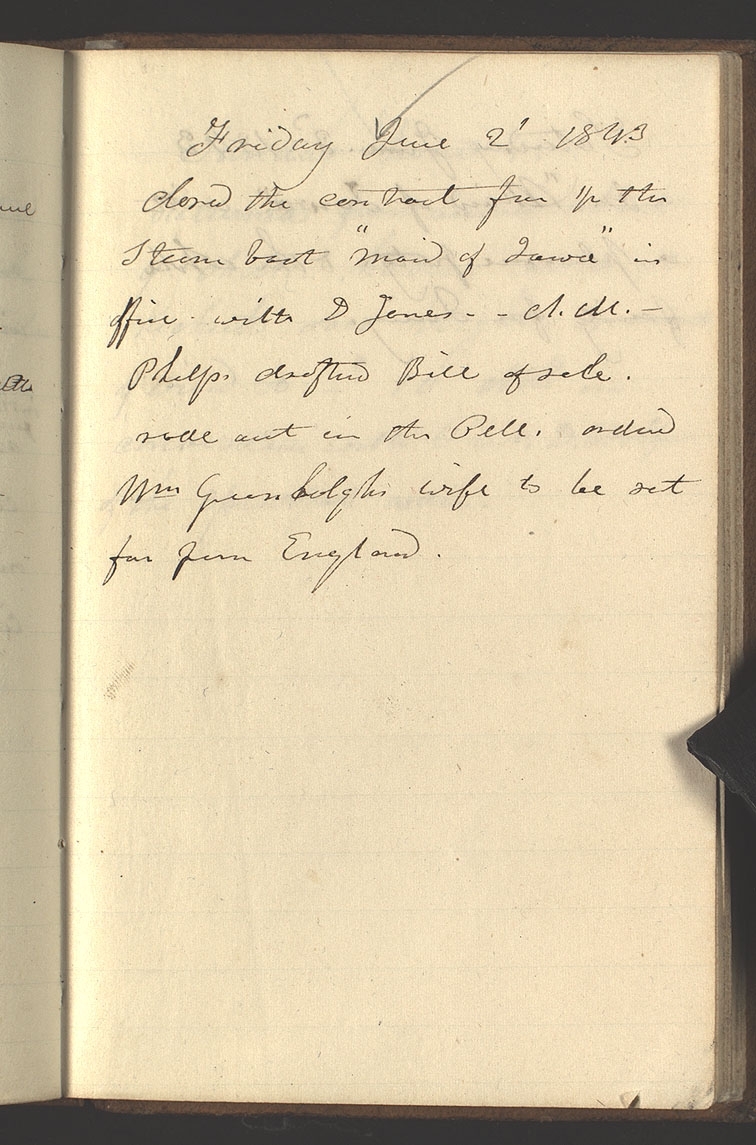 Friday June 2d 1843
closed the contract for ½ the
Steam boat "Maid of Iowa" in
office. with D Jones - - A. M. -
Phelps drafted Bill of sale.
rode out in the P.M. ordered
Wm Greenhalghs wife to be set
for from England.